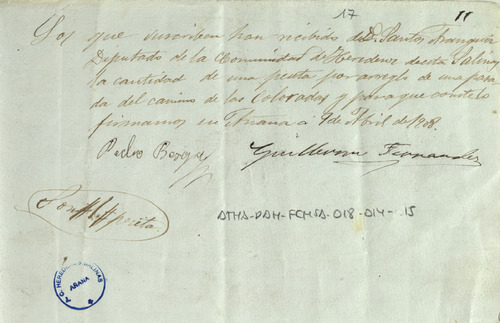 17
11
Los que suscriben han recibido del D. Santos Aranguiz
Diputado de la Comunidad de Herederos de esta Salinas
la cantidad de una peseta por arreglo de una para
da del camino de las Coloradas y para que conste lo
firmamos en Añana a 9 de Abril de 1808.
Pedro Berga
Guillermo Fernandez
Son 1 peseta.
ATHA-DAH-FCMSA-018-014-15
SALINAS
AÑANA